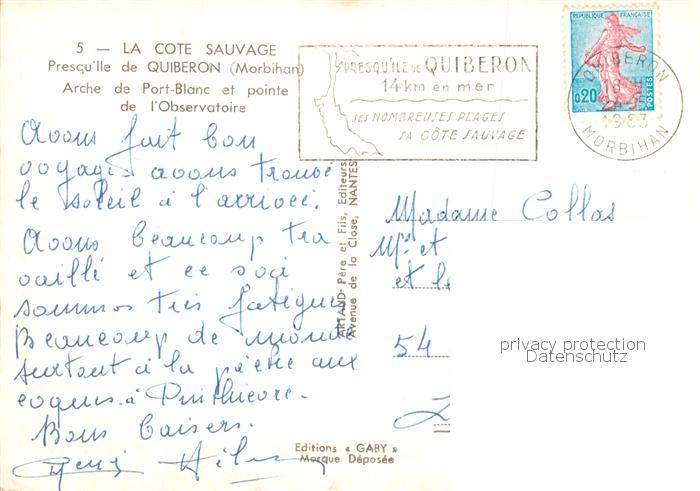 5 — LA COTE SAUVAGE
Presqu'Ile de QUIBERON (Morbihan)
Arche de Port-Blanc et pointe
de l'Observatoire
PRESQU'ILE DE QUIBERON
14 km en mer
SES NOMBREUSES PLAGES
SA CÔTE SAUVAGE
REPUBLIQUE FRANÇAISE
0,20
POSTES
QUIBERON
18 H
24-5
1963
MORBIHAN
Avons fait bon
voyage avons trouvé
le soleil à l'arrivée.
Avons beaucoup tra
vaillé et ce soir
sommes très fatigués
Beaucoup de monde
surtout à la pêche aux
coques à Penthièvre.
Bons baisers.
ARTAUD Père et Fils, Editeurs
Avenue de la Close, NANTES
Madame Collas
Mr et
et le
54
privacy protection
Datenschutz
Editions « GABY »
Marque Déposée